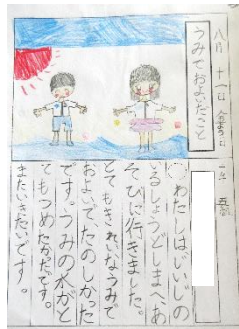 八月 十一日
うみでおよいだこと
一年 五
わたしはいいじの
るしょうどしまへあ
そびに行きました。
とてもきれいなうみで
およいでたのしかった
です。うみの水がと
てもつめたかったです。
またいきたいです。